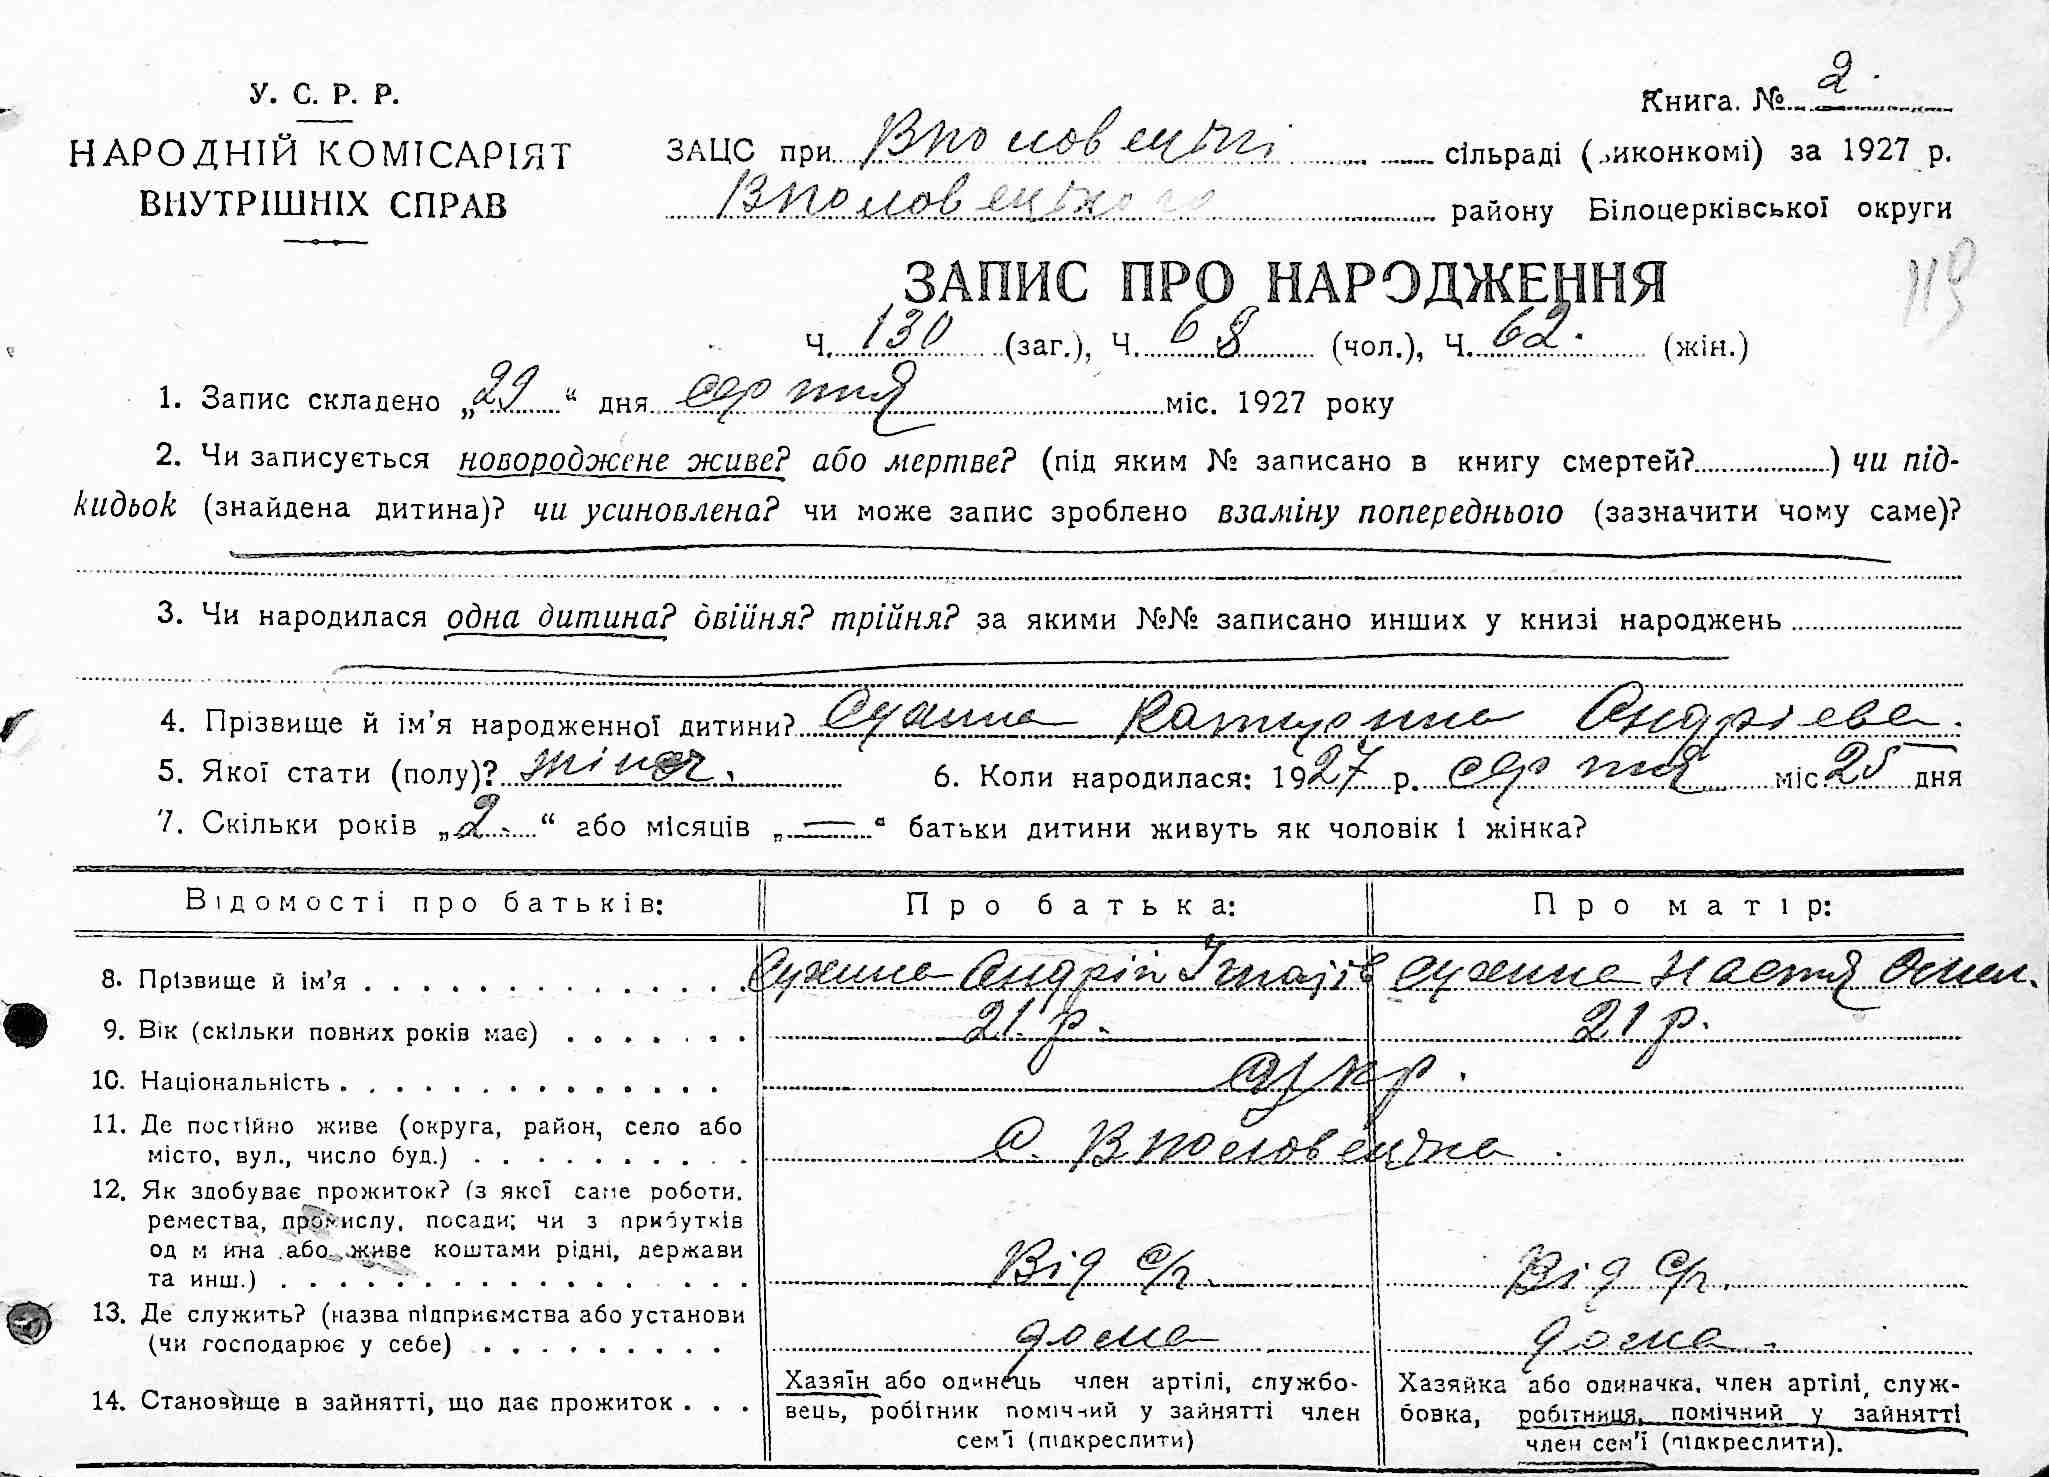 У. С. Р. Р.
НАРОДНІЙ КОМІСАРІЯТ
ВНУТРІШНІХ СПРАВ
Книга. № 2.
ЗАЦС при Вполовецькі сільраді (виконкомі) за 1927 р.
Вполовецького району Білоцерківської округи
ЗАПИС ПРО НАРОДЖЕННЯ
119
Ч. 130 (заг.), Ч. 68 (чол.), Ч. 62. (жін.)
1. Запис складено „29“ дня серпня міс. 1927 року
2. Чи записується новороджене живе? або мертве? (під яким № записано в книгу смертей?) чи під-
кидьок (знайдена дитина)? чи усиновлена? чи може запис зроблено взаміну попереднього (зазначити чому саме)?
3. Чи народилася одна дитина? двійня? трійня? за якими №№ записано инших у книзі народжень
4. Прізвище й ім'я народженної дитини? Катерина Андрієва.
5. Якої стати (полу)? жіноч. 6. Коли народилася: 1927 р. серпня міс. 25 дня
7. Скільки років „2.“ або місяців „—“ батьки дитини живуть як чоловік і жінка?
Відомості про батьків: Про батька: Про матір:
8. Прізвище й ім'я Сухина Андрій Ігнатів Сухина Настя
9. Вік (скільки повних років має) 21. р. 21 р.
10. Національність укр.
11. Де постійно живе (округа, район, село або
місто, вул., число буд.) с. Вполовецька
12. Як здобуває прожиток? (з якої саме роботи,
ремества, промислу, посади; чи з прибутків
од майна або живе коштами рідні, держави
та инш.) Від с/г. Від с/г.
13. Де служить? (назва підприємства або установи
(чи господарює у себе) дома дома.
14. Становище в зайнятті, що дає прожиток
Хазяїн або одинець член артілі, службо-
вець, робітник помічний у зайнятті член
сем'ї (підкреслити)
Хазяйка або одиначка, член артілі, служ-
бовка, робітниця, помічний у зайнятті
член сем'ї (підкреслити).